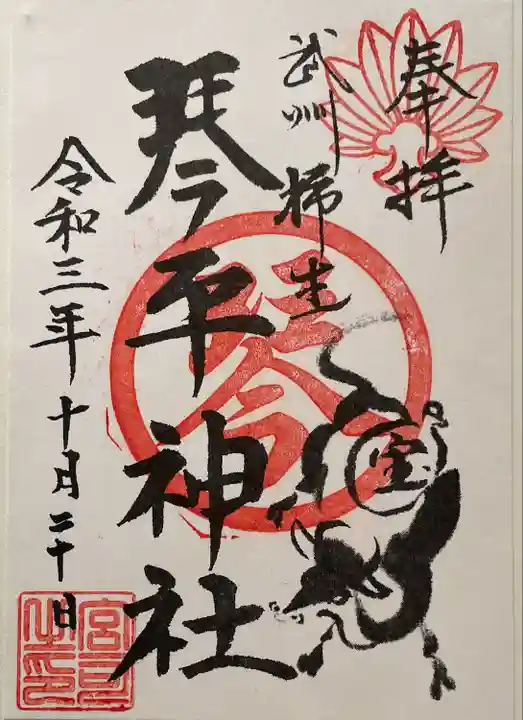 奉拝
武州 柿生
琴平神社
令和三年十月二十日
宝
宮司之印